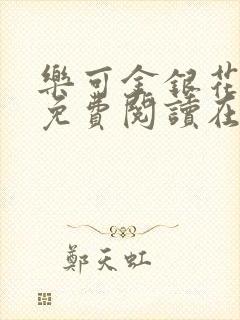 樂可金銀花
免費閱讀在
鄭天虹